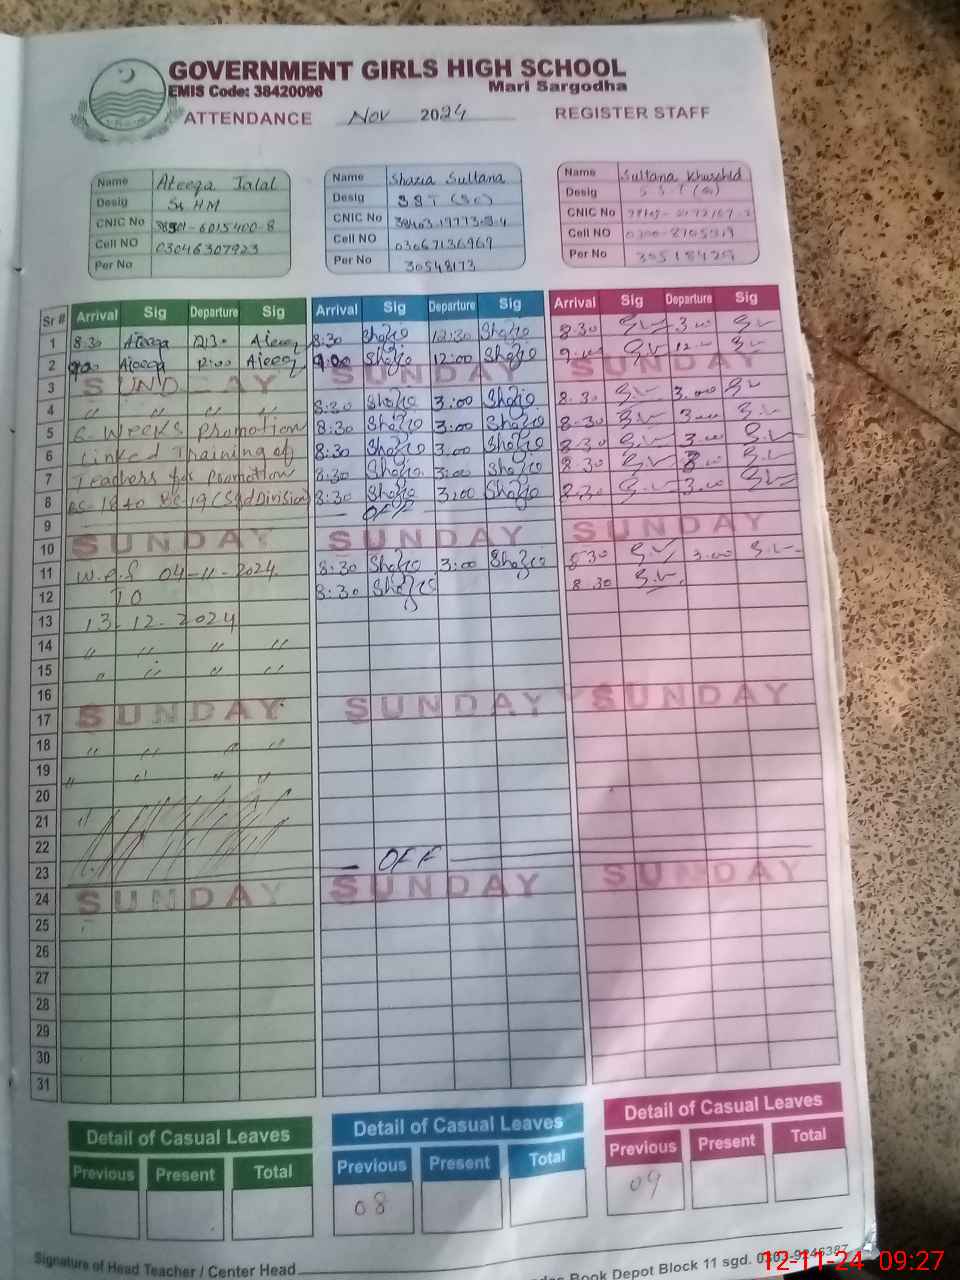 GOVERNMENT GIRLS HIGH SCHOOL
EMIS Code: 38420096
Mari Sargodha
ATTENDANCE Nov 2024 REGISTER STAFF
Name Ateeqa Jalal
Desig Ss HM
CNIC No
Cell NO 03046307923
Per No
Name Shazia Sultana
Desig SST (Sc)
CNIC No
Cell NO 03067136969
Per No 30548173
Name Sultana Khurshid
Desig
CNIC No
Cell NO
Per No
Sr # Arrival Sig Departure Sig Arrival Sig Departure Sig Arrival Sig Departure Sig
1 8:30 Ateeqa 12:30 Ateeq 8:30 Shazia 12:30 Shazia 8.30 3.00
2 9:00 Ateeqa 12:00 Ateeq 9:00 Shazia 12:00 Shazia
3 SUNDAY SUNDAY SUNDAY
4 " " " " 8:30 Shazia 3:00 Shazia 8.30 3.00
5 6-Weeks Promotion 8:30 Shazia 3:00 Shazia 8.30 3.00
6 Linked Training of 8:30 Shazia 3:00 Shazia 8.30 3.00
7 Teachers for Promotion 8:30 Shazia 3:00 Shazia 8.30
8 BS-18 to BS-19 (Sgd Division) 8:30 Shazia 3:00 Shazia 8.30 3.00
9 OFF
10 SUNDAY SUNDAY SUNDAY
11 w.e.f 04-11-2024 8:30 Shazia 3:00 Shazia 8.30 3.00
12 To 8:30 Shazia 8.30
13 13.12.2024
14 " " " "
15 " " " "
16
17 SUNDAY SUNDAY SUNDAY
18 " " " "
19 " " " "
20
21
22
23 - OFF
24 SUNDAY SUNDAY SUNDAY
25
26
27
28
29
30
31
Detail of Casual Leaves Detail of Casual Leaves Detail of Casual Leaves
Previous Present Total Previous Present Total Previous Present Total
08 09
Signature of Head Teacher / Center Head
Book Depot Block 11 sgd.
12-11-24 09:27